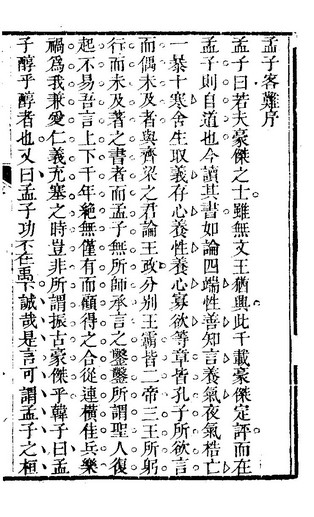 孟子客難序
孟子曰若夫豪傑之士雖無文王猶興此千載豪傑定評而在
孟子則自道也今讀其書如論四端性善知言養氣夜氣梏亡
一暴十寒舍生取義存心養性養心寡欲等章皆孔子所欲言
而偶未及者與齊梁之君論王政分别王霸皆二帝三王所躬
行而未及著之書者而孟子無所師承言之鑿鑿所謂聖人復
起不易吾言上下千年絶無僅有而顧得之合從連橫佳兵樂
禍爲我兼愛仁義充塞之時豈非所謂振古豪傑乎韓子曰孟
子醇乎醇者也又曰孟子功不在禹下誠哉是言可謂孟子之桓